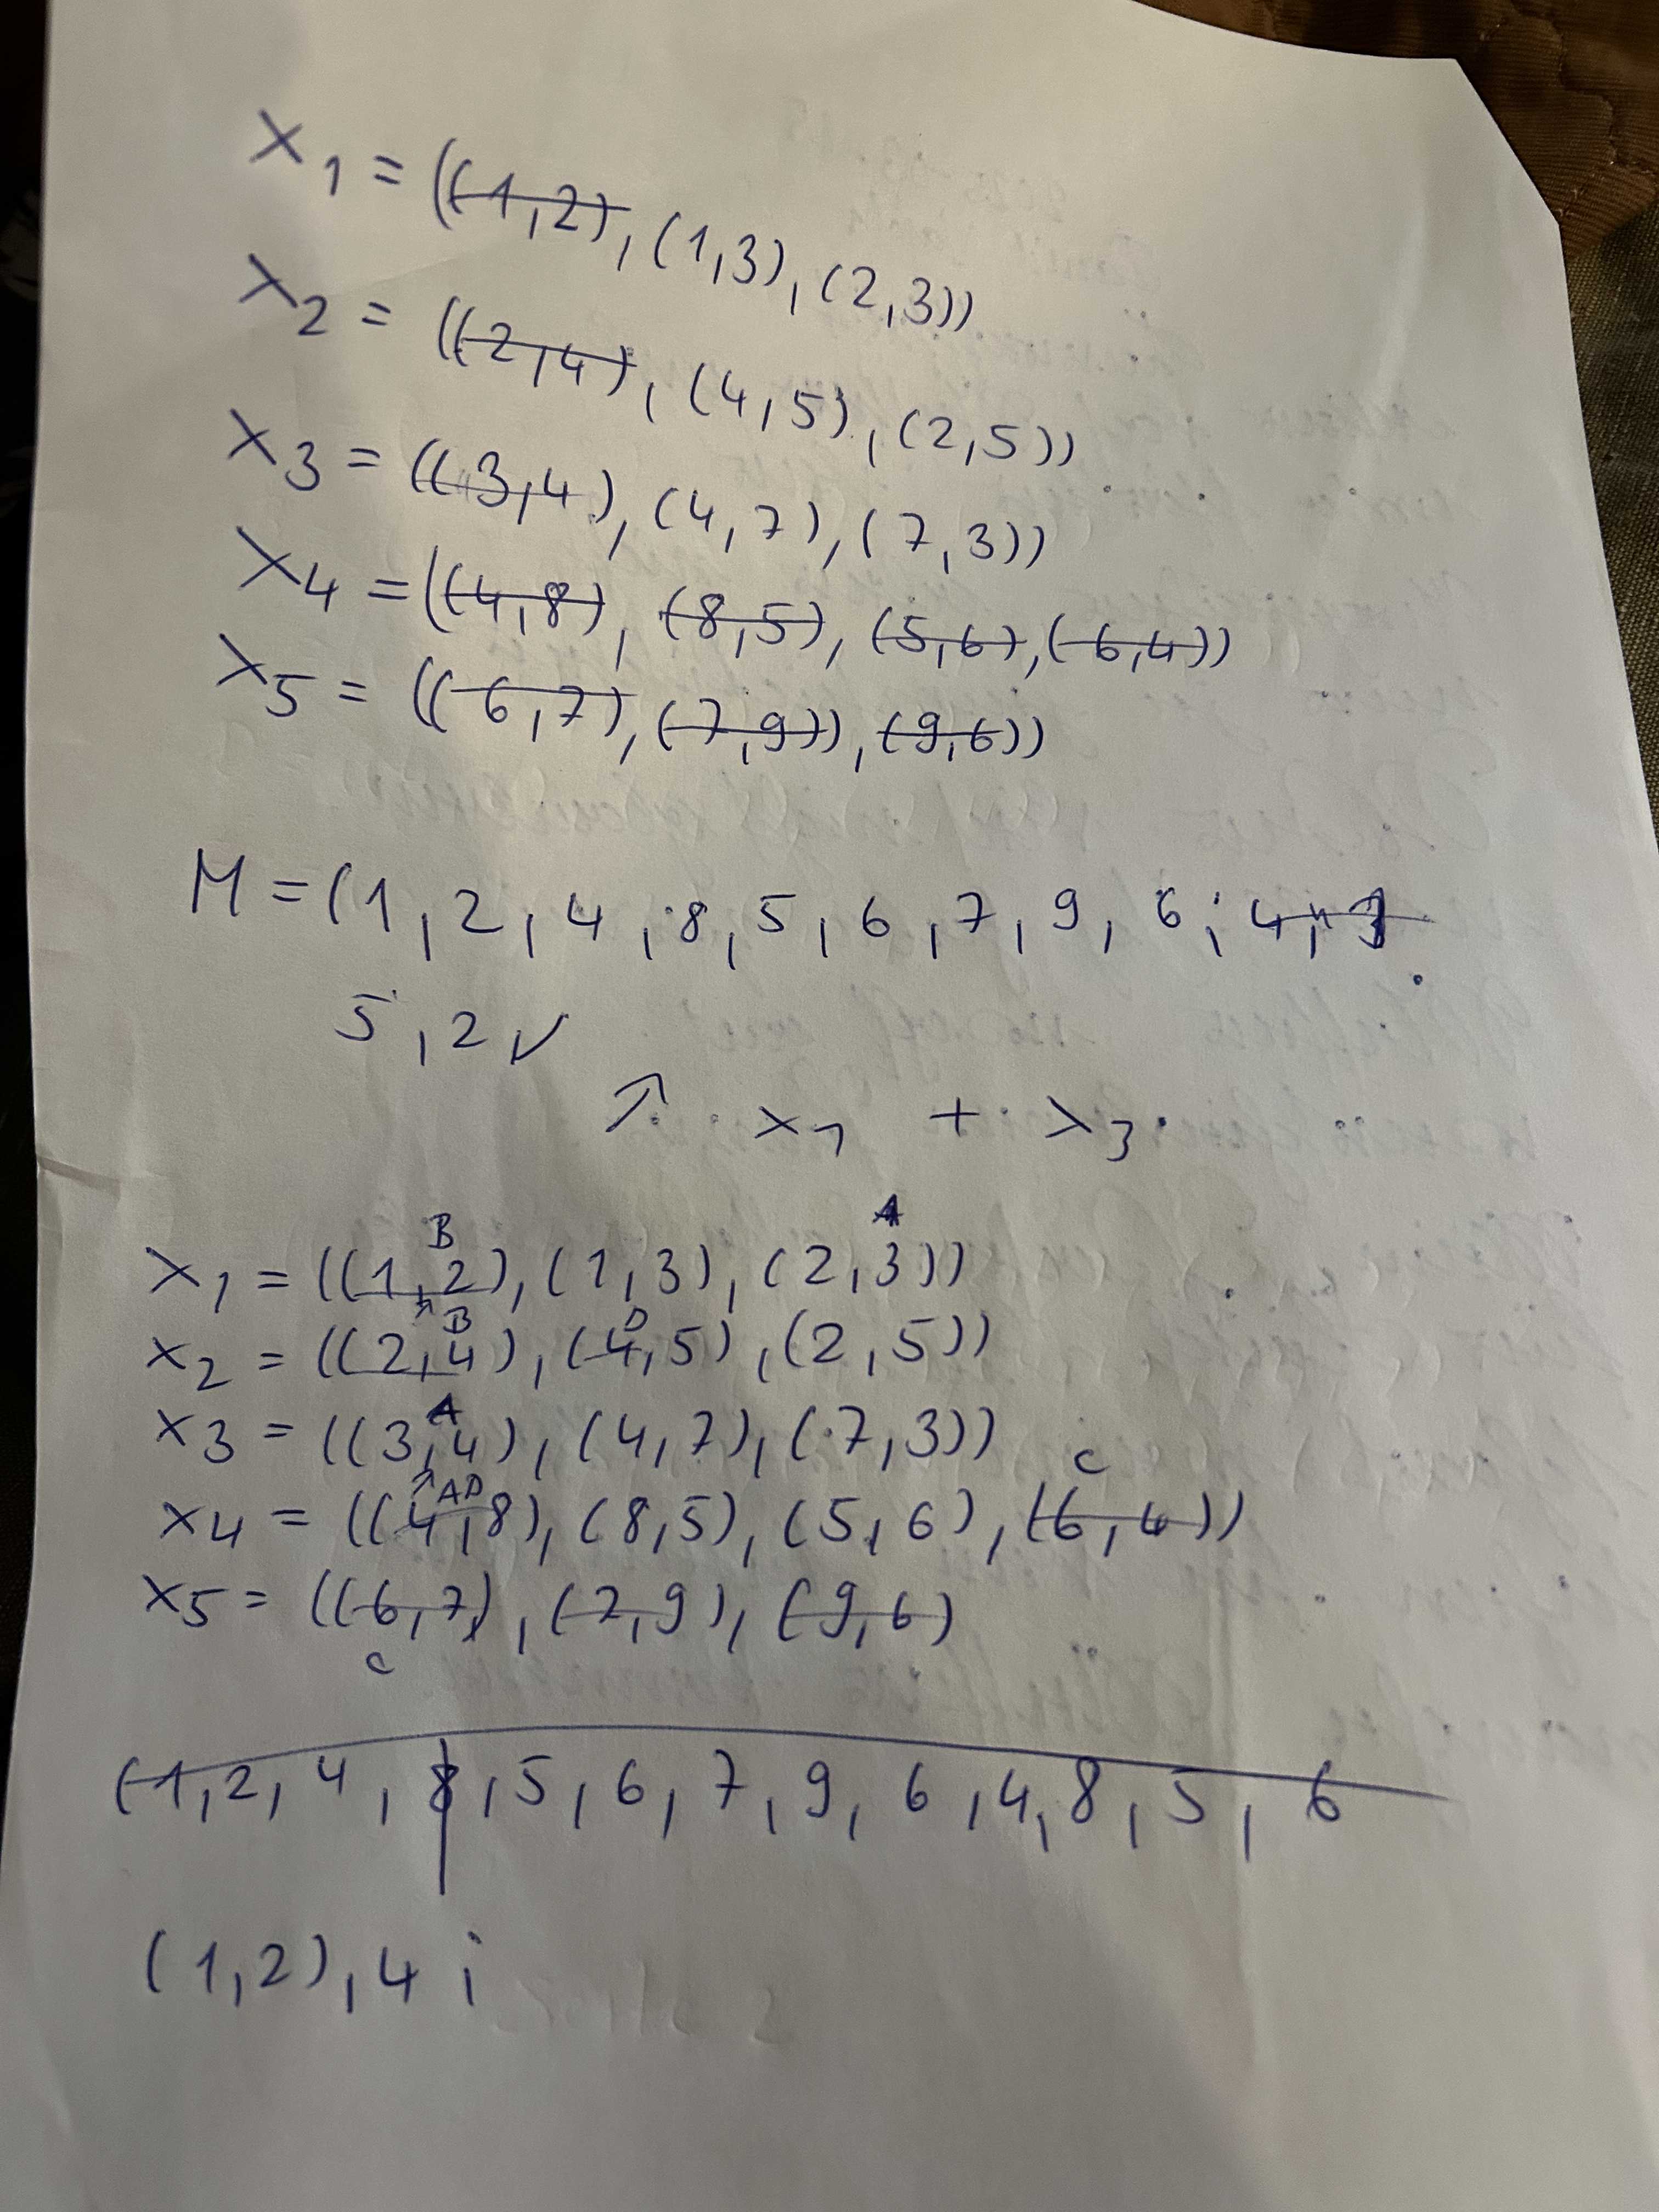 X1 = ((1,2), (1,3), (2,3))
X2 = ((2,4), (4,5), (2,5))
X3 = ((3,4), (4,7), (7,3))
X4 = ((4,8), (8,5), (5,6), (6,4))
X5 = ((6,7), (7,9)), (9,6))
M = (1, 2, 4, 8, 5, 6, 7, 9, 6; 4,
5, 2 ✓
↗ x1 + x3
B A
X1 = ((1,2), (1,3), (2,3))
↗ B D
X2 = ((2,4), (4,5), (2,5))
A
X3 = ((3,4), (4,7), (7,3))
↗ AD C
X4 = ((4,8), (8,5), (5,6), (6,4))
X5 = ((6,7), (7,9), (9,6)
C
(1, 2, 4, 8, 5, 6, 7, 9, 6, 4, 8, 5, 6
(1,2), 4 ;